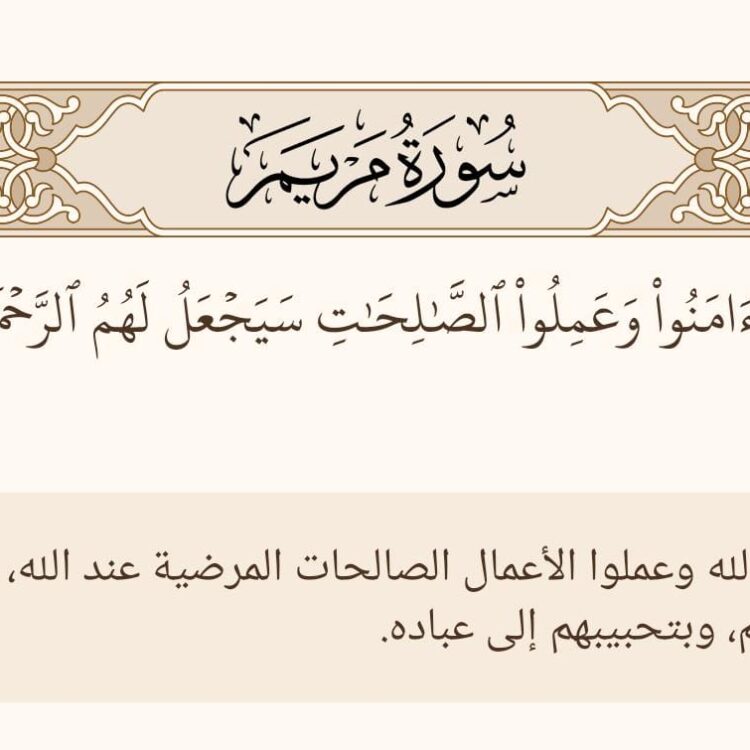 سُورَةُ مَرْيَمَ
ءَامَنُوا۟ وَعَمِلُوا۟ ٱلصَّـٰلِحَـٰتِ سَيَجْعَلُ لَهُمُ
لله وعملوا الأعمال الصالحات المرضية عند الله،
م، وبتحبيبهم إلى عباده.